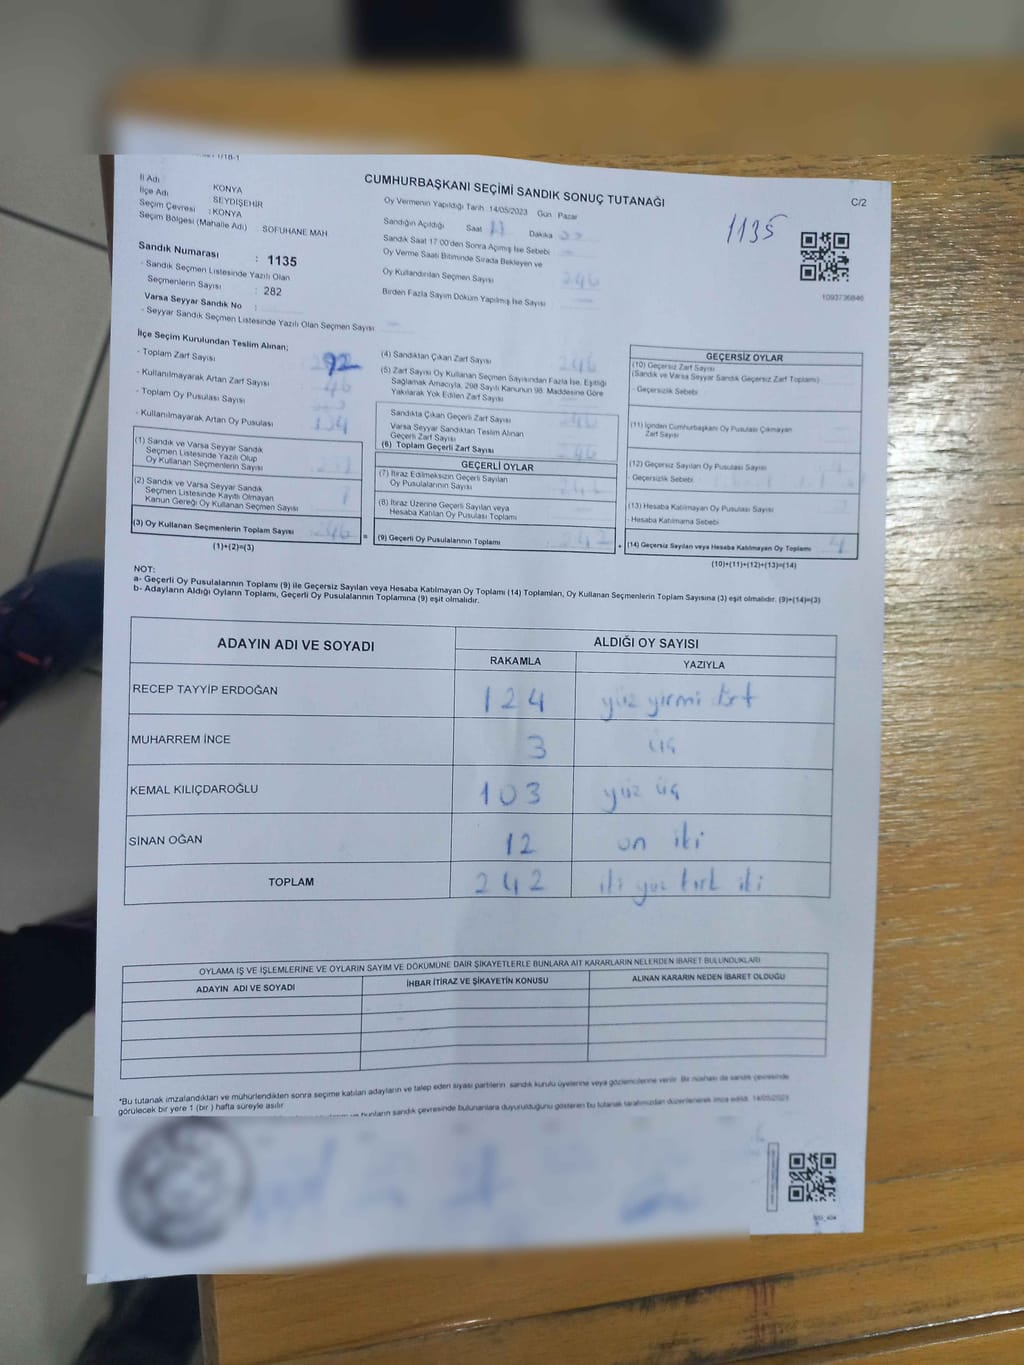 CUMHURBAŞKANI SEÇİMİ SANDIK SONUÇ TUTANAĞI
C/2
İl Adı KONYA
İlçe Adı SEYDİŞEHİR
Seçim Çevresi : KONYA
Seçim Bölgesi (Mahalle Adı) SOFUHANE MAH.
Oy Vermenin Yapıldığı Tarih 14/05/2023 Gün Pazar
Sandığın Açıldığı Saat Dakika
1135
Sandık Saat 17.00'den Sonra Açımış İse Sebebi
Oy Verme Saati Bitiminde Sırada Bekleyen ve
Oy Kullandırılan Seçmen Sayısı 246
Birden Fazla Sayım Döküm Yapılmış İse Sayısı
1093736846
Sandık Numarası : 1135
- Sandık Seçmen Listesinde Yazılı Olan
Seçmenlerin Sayısı : 282
Varsa Seyyar Sandık No :
- Seyyar Sandık Seçmen Listesinde Yazılı Olan Seçmen Sayısı
İlçe Seçim Kurulundan Teslim Alınan;
- Toplam Zarf Sayısı 92
- Kullanılmayarak Artan Zarf Sayısı 46
- Toplam Oy Pusulası Sayısı
- Kullanılmayarak Artan Oy Pusulası 134
(1) Sandık ve Varsa Seyyar Sandık
Seçmen Listesinde Yazılı Olup
Oy Kullanan Seçmenlerin Sayısı
(2) Sandık ve Varsa Seyyar Sandık
Seçmen Listesinde Kayıtlı Olmayan
Kanun Gereği Oy Kullanan Seçmen Sayısı 1
(3) Oy Kullanan Seçmenlerin Toplam Sayısı 246
(1)+(2)=(3)
=
(4) Sandıktan Çıkan Zarf Sayısı 246
(5) Zarf Sayısı Oy Kullanan Seçmen Sayısından Fazla İse, Eşitliği
Sağlamak Amacıyla, 298 Sayılı Kanunun 98. Maddesine Göre
Yakılarak Yok Edilen Zarf Sayısı
Sandıkta Çıkan Geçerli Zarf Sayısı 246
Varsa Seyyar Sandıktan Teslim Alınan
Geçerli Zarf Sayısı
(6) Toplam Geçerli Zarf Sayısı 246
GEÇERLİ OYLAR
(7) İtiraz Edilmeksizin Geçerli Sayılan
Oy Pusulalarının Sayısı 242
(8) İtiraz Üzerine Geçerli Sayılan veya
Hesaba Katılan Oy Pusulası Toplamı
(9) Geçerli Oy Pusulalarının Toplamı 242
+
GEÇERSİZ OYLAR
(10) Geçersiz Zarf Sayısı
(Sandık ve Varsa Seyyar Sandık Geçersiz Zarf Toplamı)
- Geçersizlik Sebebi
(11) İçinden Cumhurbaşkanı Oy Pusulası Çıkmayan
Zarf Sayısı
(12) Geçersiz Sayılan Oy Pusulası Sayısı
- Geçersizlik Sebebi
(13) Hesaba Katılmayan Oy Pusulası Sayısı
- Hesaba Katılmama Sebebi
(14) Geçersiz Sayılan veya Hesaba Katılmayan Oy Toplamı 4
(10)+(11)+(12)+(13)=(14)
NOT:
a- Geçerli Oy Pusulalarının Toplamı (9) ile Geçersiz Sayılan veya Hesaba Katılmayan Oy Toplamı (14) Toplamları, Oy Kullanan Seçmenlerin Toplam Sayısına (3) eşit olmalıdır. (9)+(14)=(3)
b- Adayların Aldığı Oyların Toplamı, Geçerli Oy Pusulalarının Toplamına (9) eşit olmalıdır.
ADAYIN ADI VE SOYADI ALDIĞI OY SAYISI
RAKAMLA YAZIYLA
RECEP TAYYİP ERDOĞAN 124 yüz yirmi dört
MUHARREM İNCE 3 üç
KEMAL KILIÇDAROĞLU 103 yüz üç
SİNAN OĞAN 12 on iki
TOPLAM 242 iki yüz kırk iki
OYLAMA İŞ VE İŞLEMLERİNE VE OYLARIN SAYIM VE DÖKÜMÜNE DAİR ŞİKAYETLERLE BUNLARA AİT KARARLARIN NELERDEN İBARET BULUNDUKLARI
ADAYIN ADI VE SOYADI İHBAR İTİRAZ VE ŞİKAYETİN KONUSU ALINAN KARARIN NEDEN İBARET OLDUĞU
*Bu tutanak imzalandıktan ve mühürlendikten sonra seçime katılan adayların ve talep eden siyasi partilerin sandık kurulu üyelerine veya gözlemcilerine verilir. Bir nüshası da sandık çevresinde
görülecek bir yere 1 (bir) hafta süreyle asılır.
bunların sandık çevresinde bulunanlara duyurulduğunu gösteren bu tutanak tarafımızdan düzenlenerek imza edildi. 14/05/2023